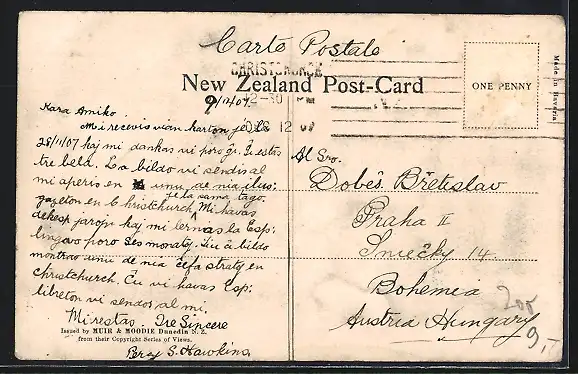 Carte Postale
CHRISTCHURCH
New Zealand Post-Card
ONE PENNY
Made in Bavaria
12-30 PM
DEC 12 07
9/12/07
Kara Amiko.
Mi recevis vian karton je la
28/11/07 kaj mi dankas vi poro ĝi. Ĝi estas
tre bela. La bildo vi sendis al
mi aperis en unu de nia ilus:
je la sama tago.
gazeton en Christchurch. Mi havas
dekesp jaroju kaj mi lernas la Esp:
lingvo poro ses monatoj. Tiu ĉi bildo
montras unu de nia ĉefa stratoj en
Christchurch. Ĉu vi havas Esp:
libreton vi sendos al mi.
Mi restas Tre Sincere
Percy S. Hawkins.
Issued by MUIR & MOODIE Dunedin N.Z.
from their Copyright Series of Views.
Al Sro.
Dobeš Břetislav
Praha II
Smečky 14.
Bohemia
Austria Hungary
9,-